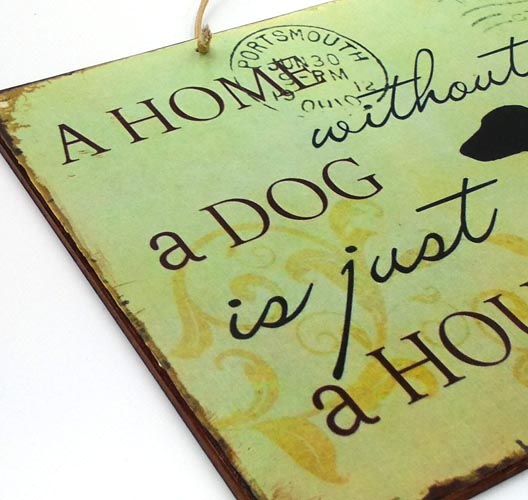 PORTSMOUTH
JUN 30
9 - PM
19 12
OHIO
A HOME
without
a DOG
is just
a HOU